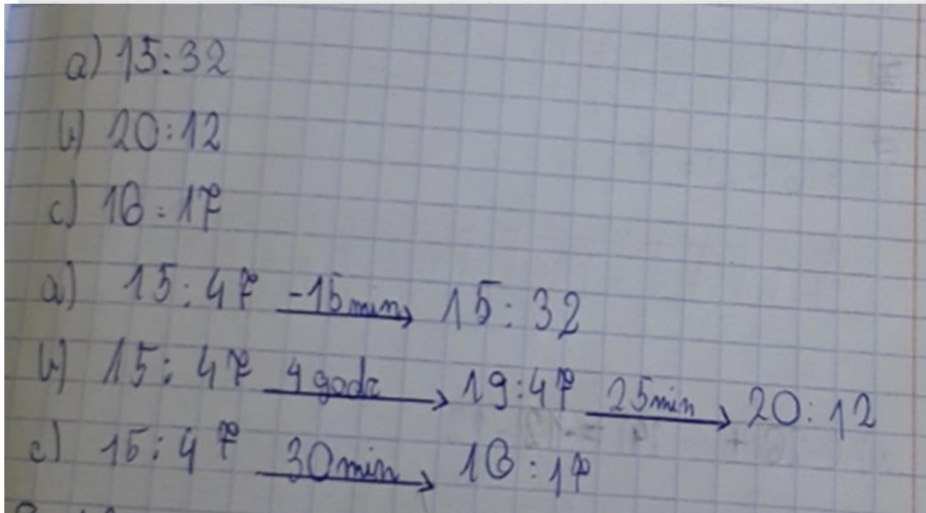 a) 15:32
b) 20:12
c) 16:17
a) 15:47 -15min→ 15:32
b) 15:47 4 godz→ 19:47 25min→ 20:12
c) 15:47 30min→ 16:17